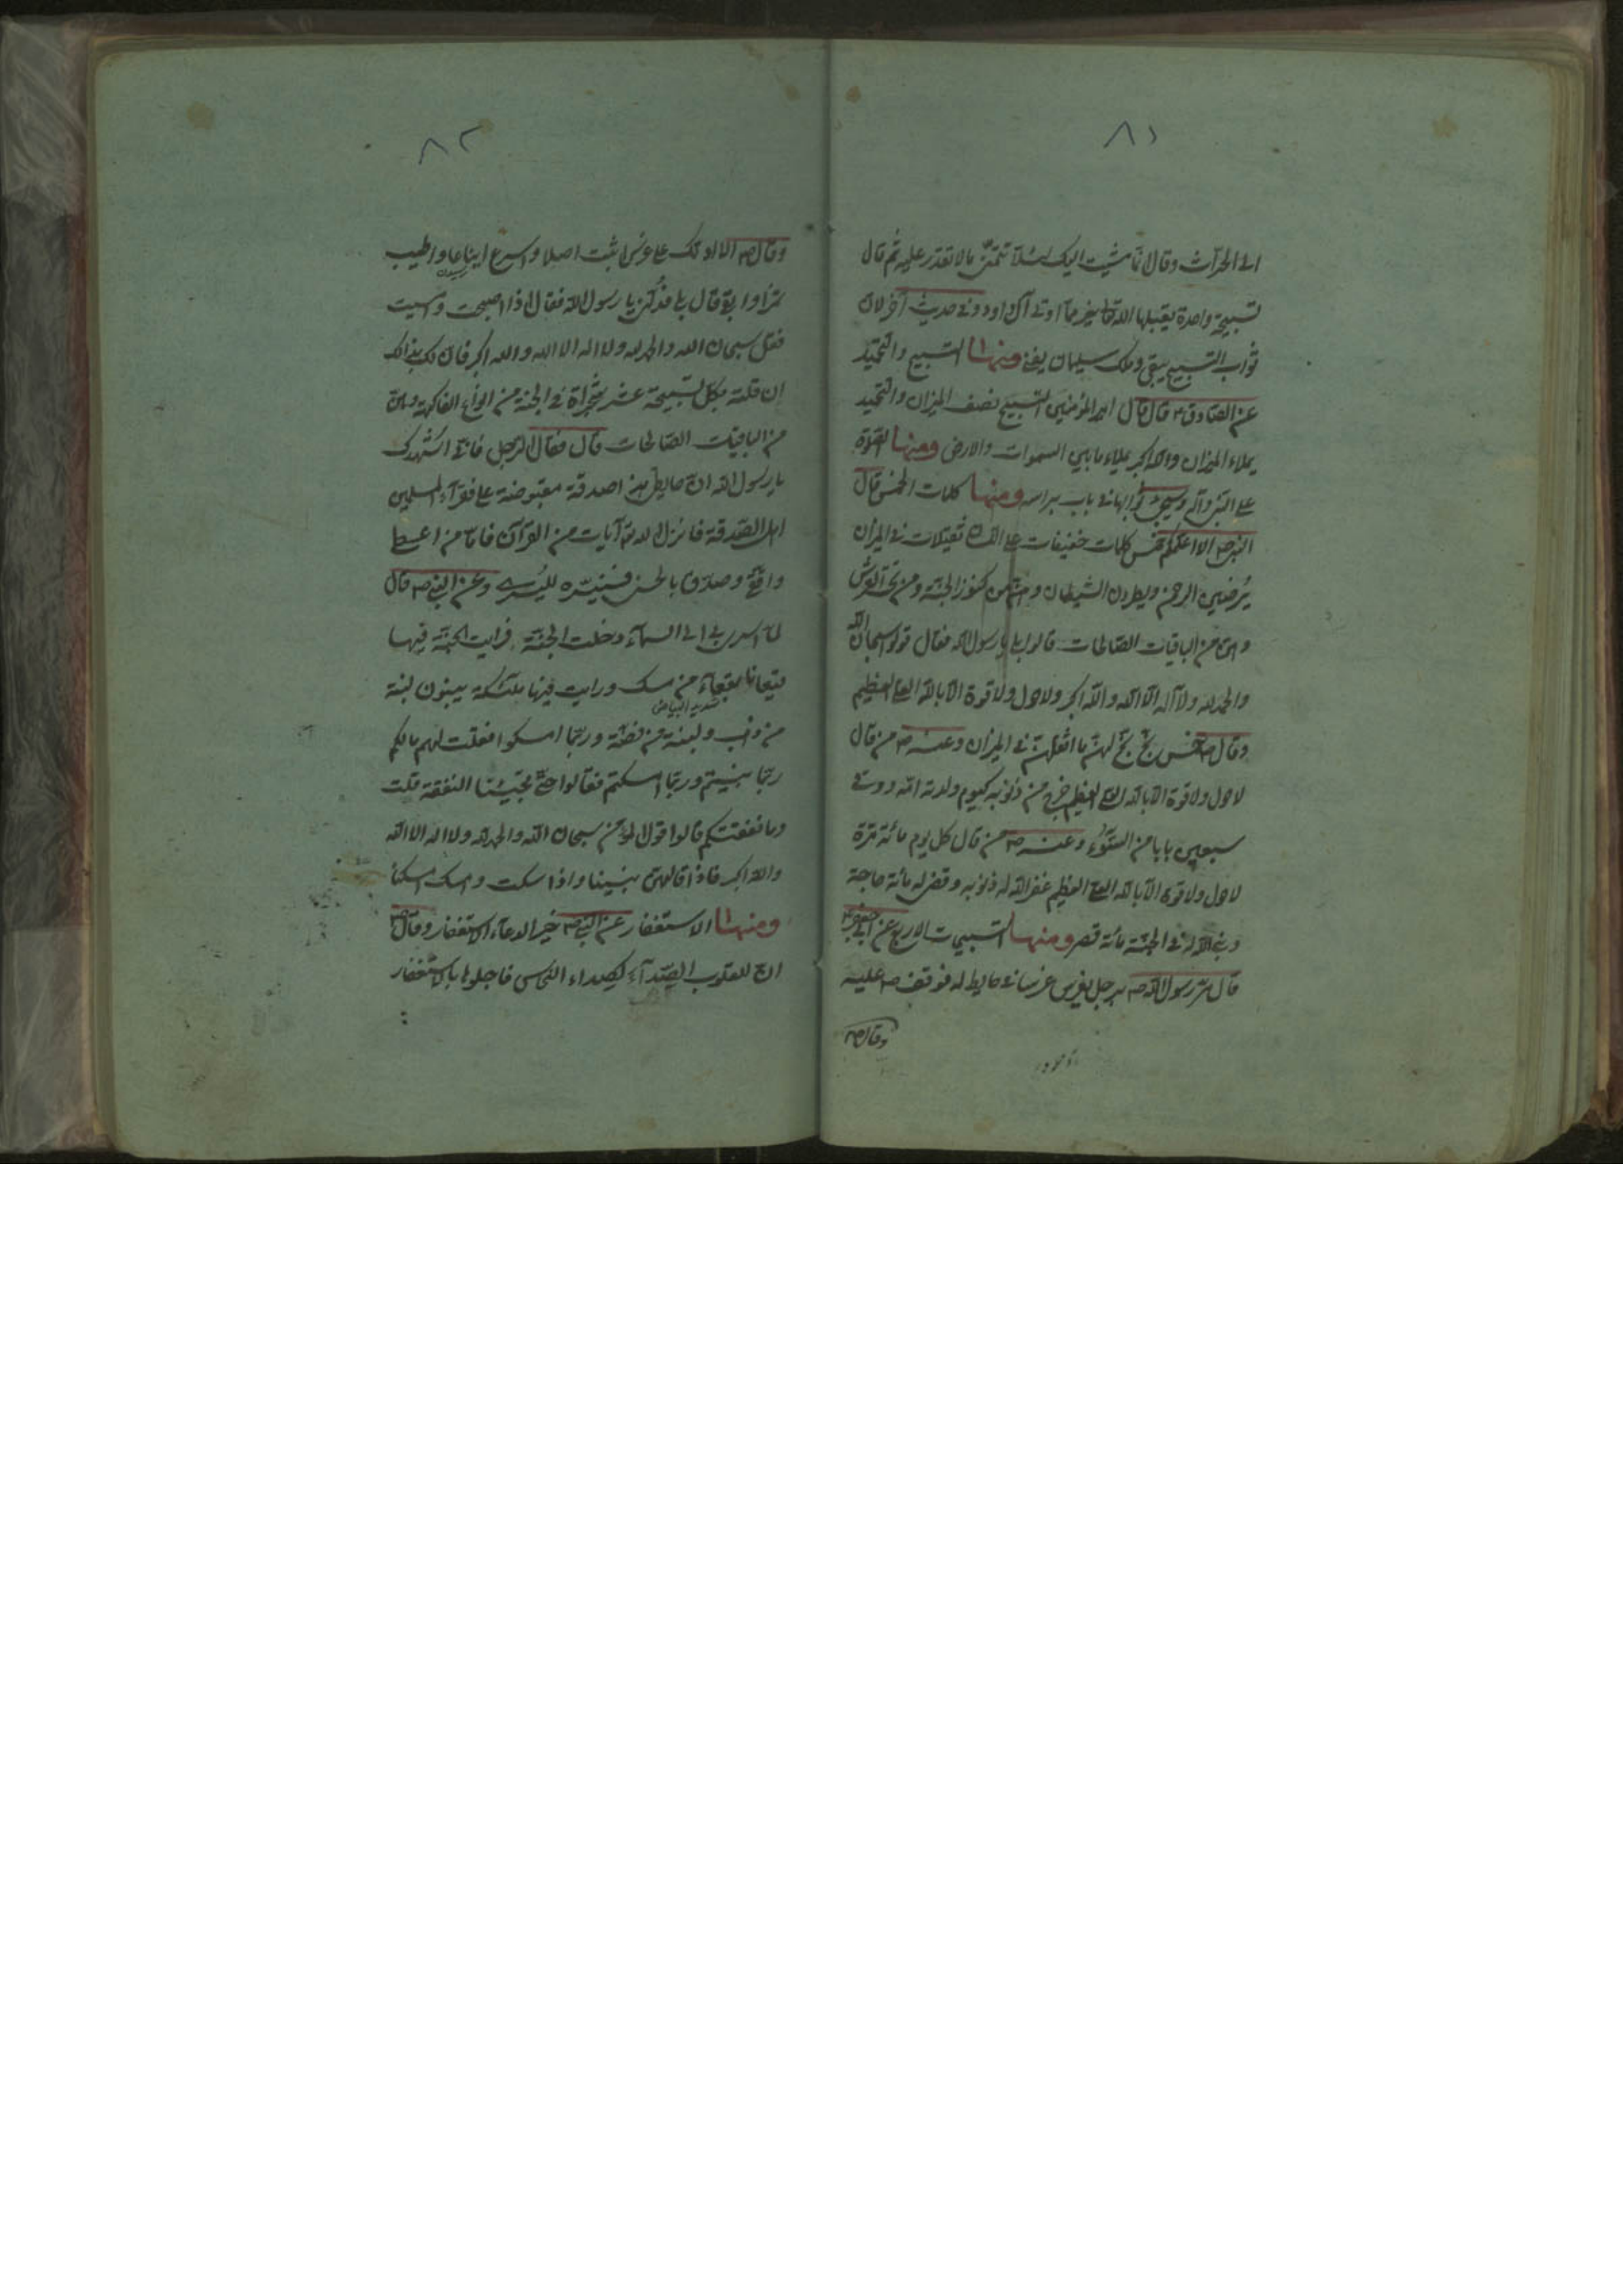 ٨١
الى الحرّاث وقال انّما مشيت اليك لئلّا تتمنّى مالا تقدر عليه ثم قال
تسبيحة واحدة يقبلها الله تعالى خير مما اوتى آل داود وفى حديث آخر لان
ثواب التسبيح يبقى وملك سليمان يفنى ومنها التسبيح والتحميد
عن الصادق ع قال قال امير المؤمنين التسبيح نصف الميزان والتحميد
يملاء الميزان والله اكبر يملاء ما بين السموات والارض ومنها الصّلوة
على النبى وآله وسيجئ ثوابها فى باب براسه ومنها كلمات الخمس قال
النبى ص الا اعلمكم خمس كلمات خفيفات على اللسان ثقيلات فى الميزان
يُرضين الرحمن ويطردن الشيطان وهنّ من كنوز الجنّة ومن تحت العرش
وهنّ من الباقيات الصّالحات قالوا بلى يا رسول الله فقال قولوا سبحان الله
والحمد لله ولا اله الّا الله والله اكبر ولا حول ولا قوة الّا بالله العلى العظيم
وقال ص خمس بخّ بخّ لهنّ ما اثقلهنّ فى الميزان وعنه ص من قال
لا حول ولا قوة الّا بالله العلى العظيم خرج من ذنوبه كيوم ولدته امّه ووقى
سبعين بابا من السّوء وعنه ص من قال كل يوم مائة مرّة
لا حول ولا قوة الّا بالله العلى العظيم غفر الله له ذنوبه وقضى له مائة حاجة
وبنى الله له فى الجنّة مائة قصر ومنها التسبيحات الاربع عن ابى جعفر ع
قال مرّ رسول الله ص برجل يغرس غرسا فى حايط له فوقف ص عليه
وقال ص
٨٢
وقال ص الا ادلك على غرس اثبت اصلا واسرع ايناعا واطيب
ثمرا وابقى قال بلى فدُلّنى يا رسول الله فقال اذا اصبحت وامسيت
فقل سبحان الله والحمد لله ولا اله الا الله والله اكبر فان لك بذالك
ان قلته بكل تسبيحة عشر شجراة فى الجنة من انواع الفاكهة وهنّ
من الباقيات الصّالحات قال فقال الرجل فانّى اُشهدك
يا رسول الله انّ حايطى هذا صدقة مقبوضة على فقرآء المسلمين
اهل الصّدقة فانزل الله آيات من القرآن فامّا من اعطى
واتّقى وصدّق بالحسنى فسنيسّره لليُسرى وعن النبى ص قال
لمّا اسرى بى الى السمآء دخلت الجنّة فرايت الجنّة فيها
قيعانا بقعاء من مسك ورايت فيها ملئكة يبنون لبنة
شديد البياض
من ذهب ولبنة من فضّة وربّما امسكوا فقلت لهم ما لكم
ربّما بنيتم وربّما امسكتم فقالوا حتّى تجيئنا النفقة قلت
وما نفقتكم قالوا قول المؤمن سبحان الله والحمد لله ولا اله الا الله
والله اكبر فاذا قالهنّ بنينا واذا سكت وامسك امسكنا
ومنها الاستغفار عن النبى ص خير الدعآء الاستغفار وقال ص
انّ للقلوب الصّدآء كصداء النحاس فاجلوها بالاستغفار